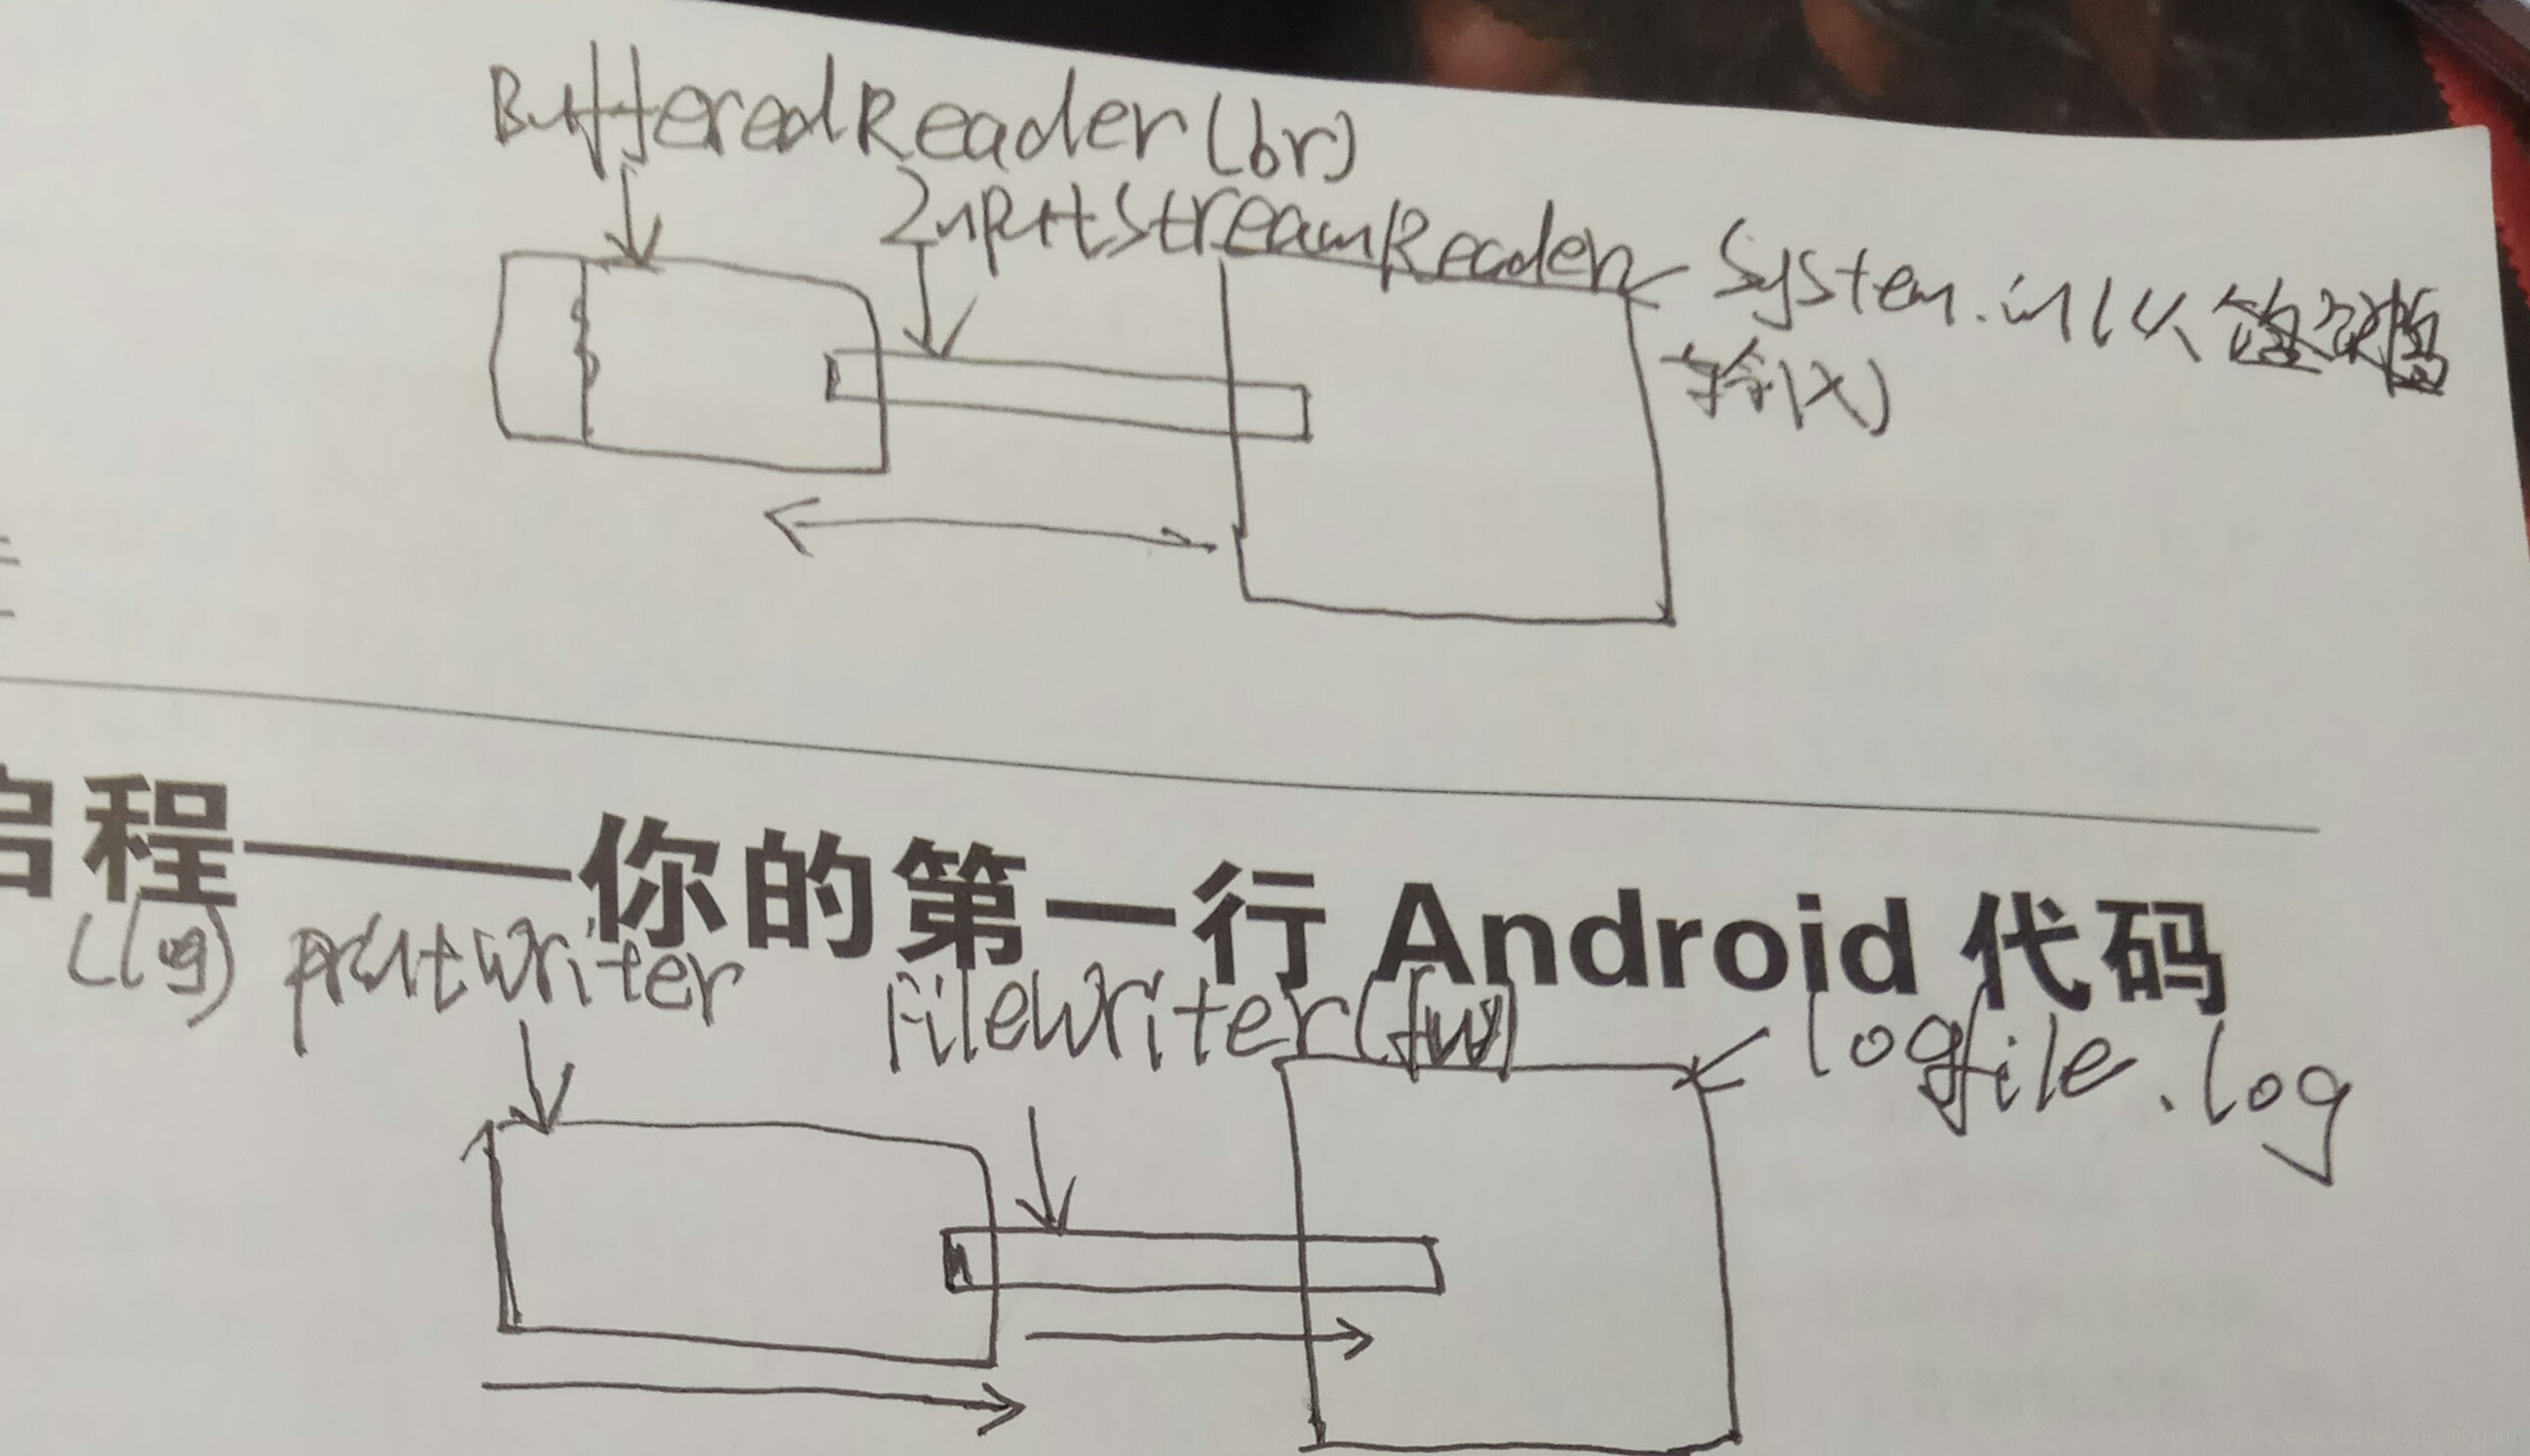 BufferedReader(br)
InputStreamReader
System.in(从键盘
输入)
启程——你的第一行 Android 代码
(log) printwriter
FileWriter(fw)
logfile.log